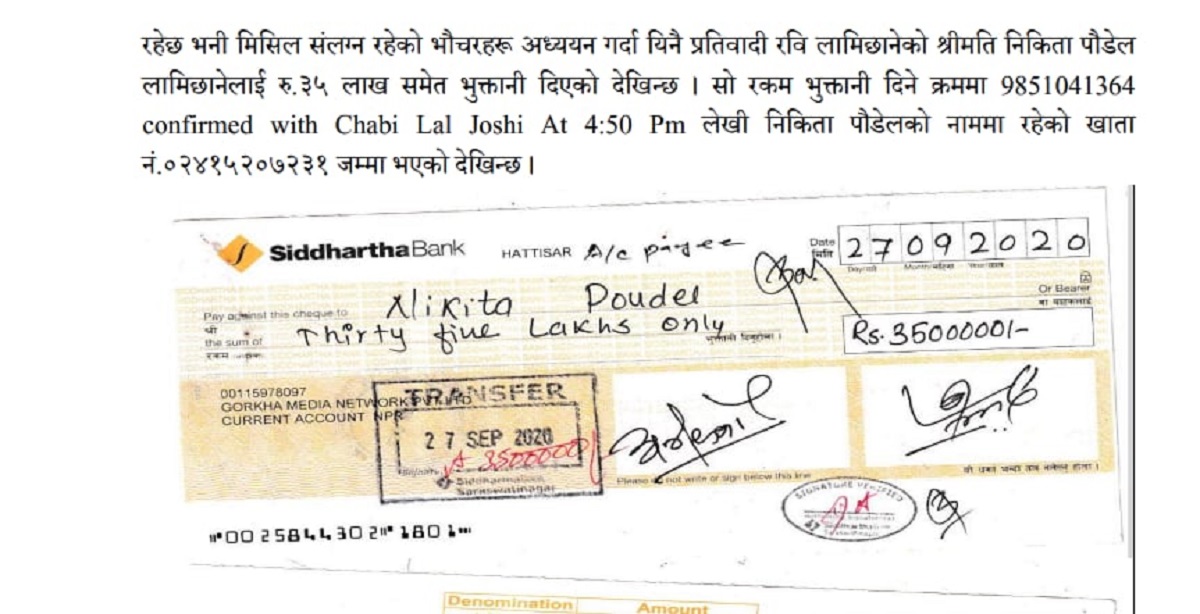 रहेछ भनी मिसिल संलग्न रहेको भौचरहरू अध्ययन गर्दा यिनै प्रतिवादी रवि लामिछानेको श्रीमति निकिता पौडेल
लामिछानेलाई रु.३५ लाख समेत भुक्तानी दिएको देखिन्छ । सो रकम भुक्तानी दिने क्रममा 9851041364
confirmed with Chabi Lal Joshi At 4:50 Pm लेखी निकिता पौडेलको नाममा रहेको खाता
नं.०२४१५२०७२३१ जम्मा भएको देखिन्छ ।
SiddharthaBank HATTISAR A/c payee Date मिति 27092020
Or Bearer
Pay against this cheque to Nikita Poudel
श्री
the sum of Thirty five Lakhs only
रकम
Rs. 3500000/-
00115978097
GORKHA MEDIA NETWORK PVT LTD
CURRENT ACCOUNT NPR
TRANSFER
27 SEP 2020
3500000/
Please do not write or sign below this line
SIGNATURE VERIFIED
"00 25844302" 1801"
Denomination Amount